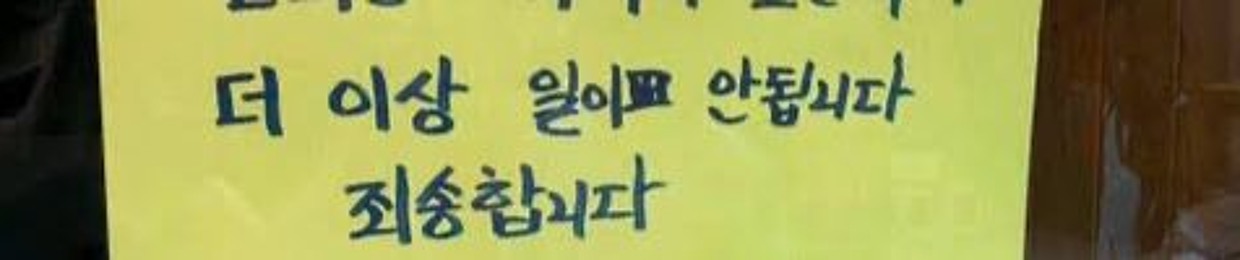 더 이상 일이 안됩니다
죄송합니다